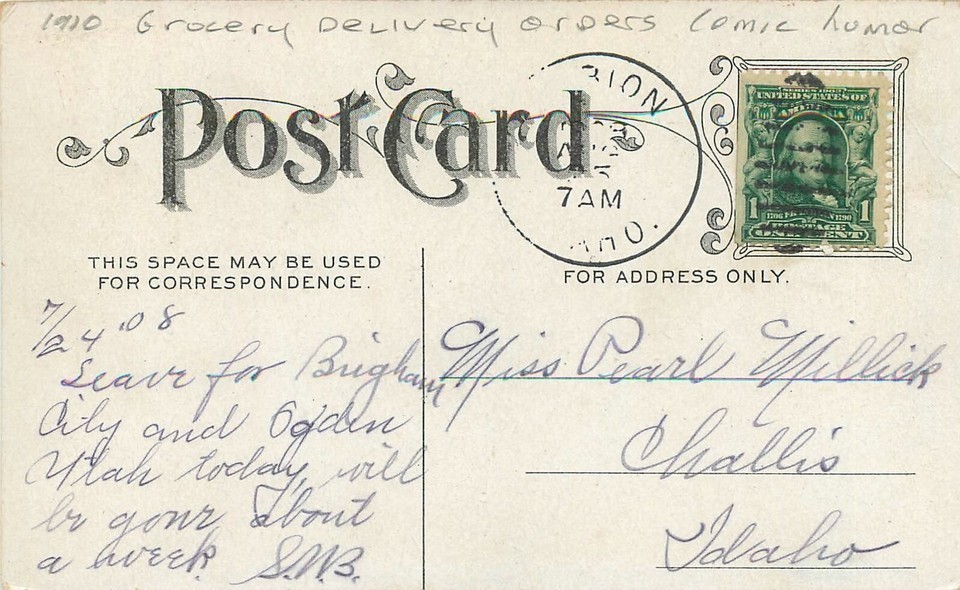 1910 Grocery Delivery orders Comic humor
Post Card
BION
7 AM
AHO.
SERIES 1902
UNITED STATES OF
AMERICA
1 1706 FRANKLIN 1790 1
POSTAGE
ONE CENT
THIS SPACE MAY BE USED
FOR CORRESPONDENCE.
FOR ADDRESS ONLY.
7/24 '08
Leave for Brigham
City and Ogden
Utah today, will
be gone about
a week. S.W.B.
Miss Pearl Millick
Challis
Idaho